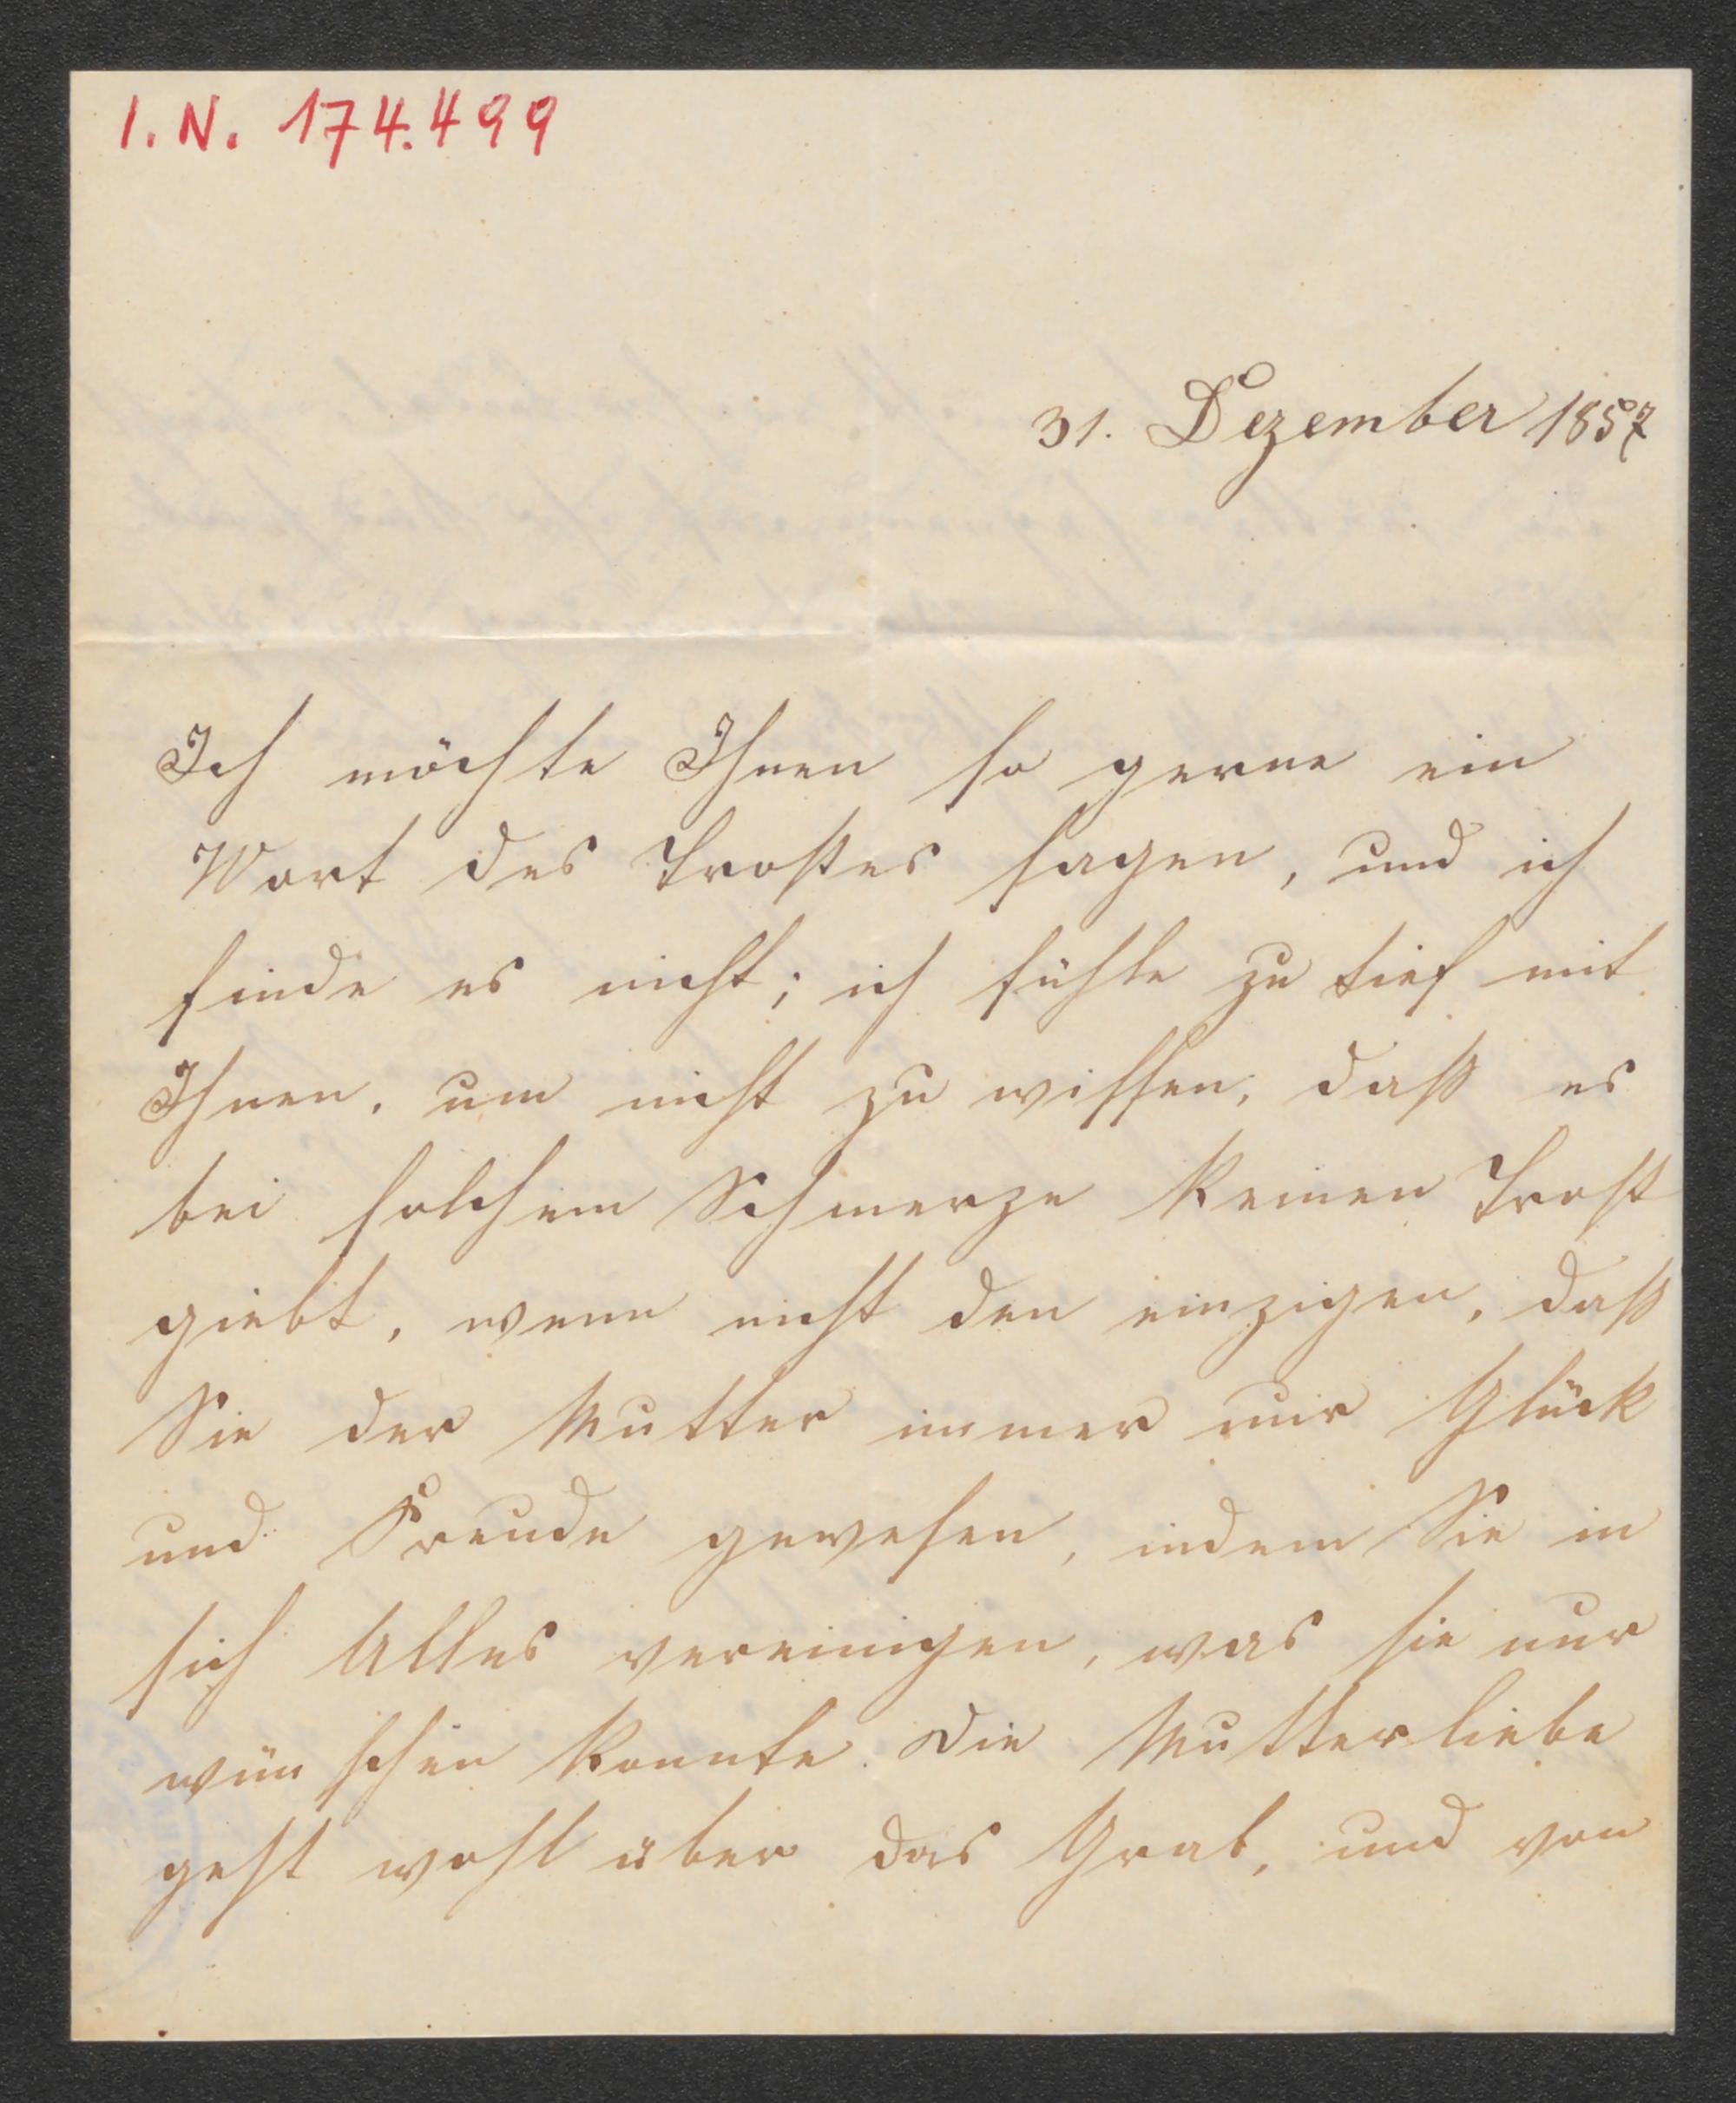 I.N. 174.499
31. Dezember 1857
Ich möchte Ihnen so gerne ein
Wort des Trostes sagen, und ich
finde es nicht; ich fühle zu tief mit
Ihnen, um nicht zu wissen, daß es
bei solchem Schmerze keinen Trost
giebt, wenn nicht den einzigen, daß
Sie der Mutter immer nur Glück
und Freude gewesen, indem Sie in
sich Alles vereinigen, was sie nur
wünschen konnte. Die Mutterliebe
geht wohl über das Grab, und von